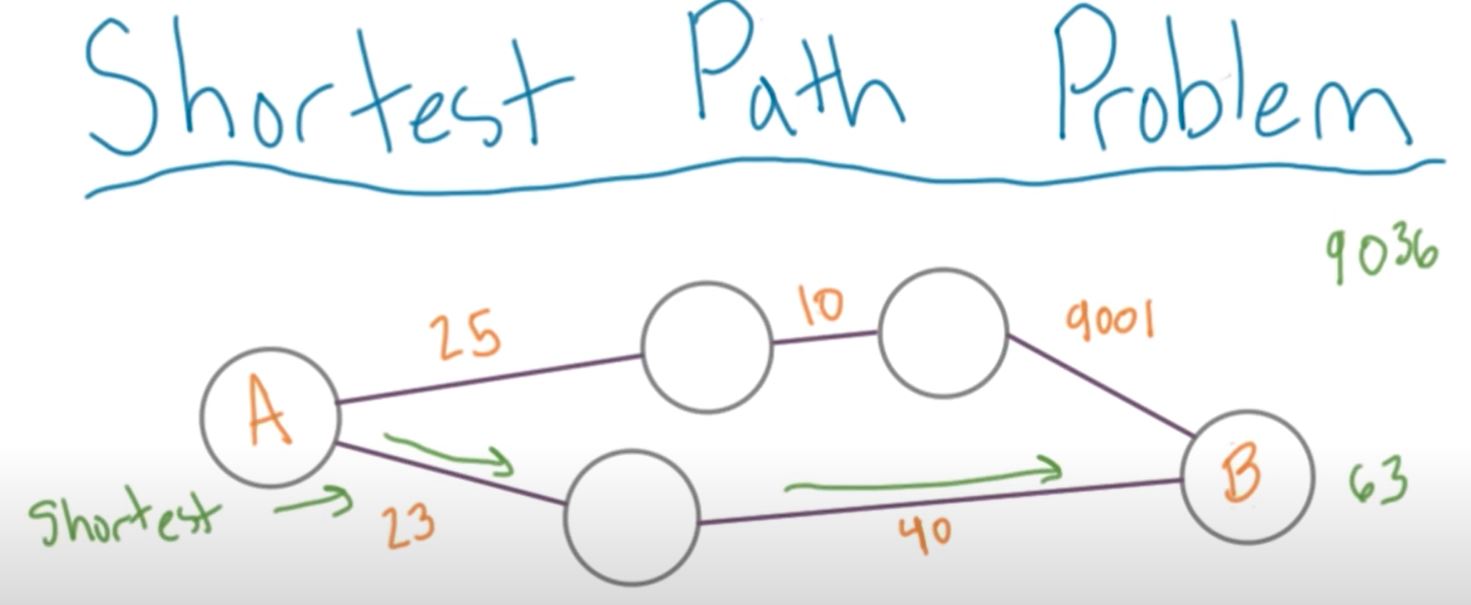 Shortest Path Problem
9036
25
10
9001
A
B
63
Shortest
23
40